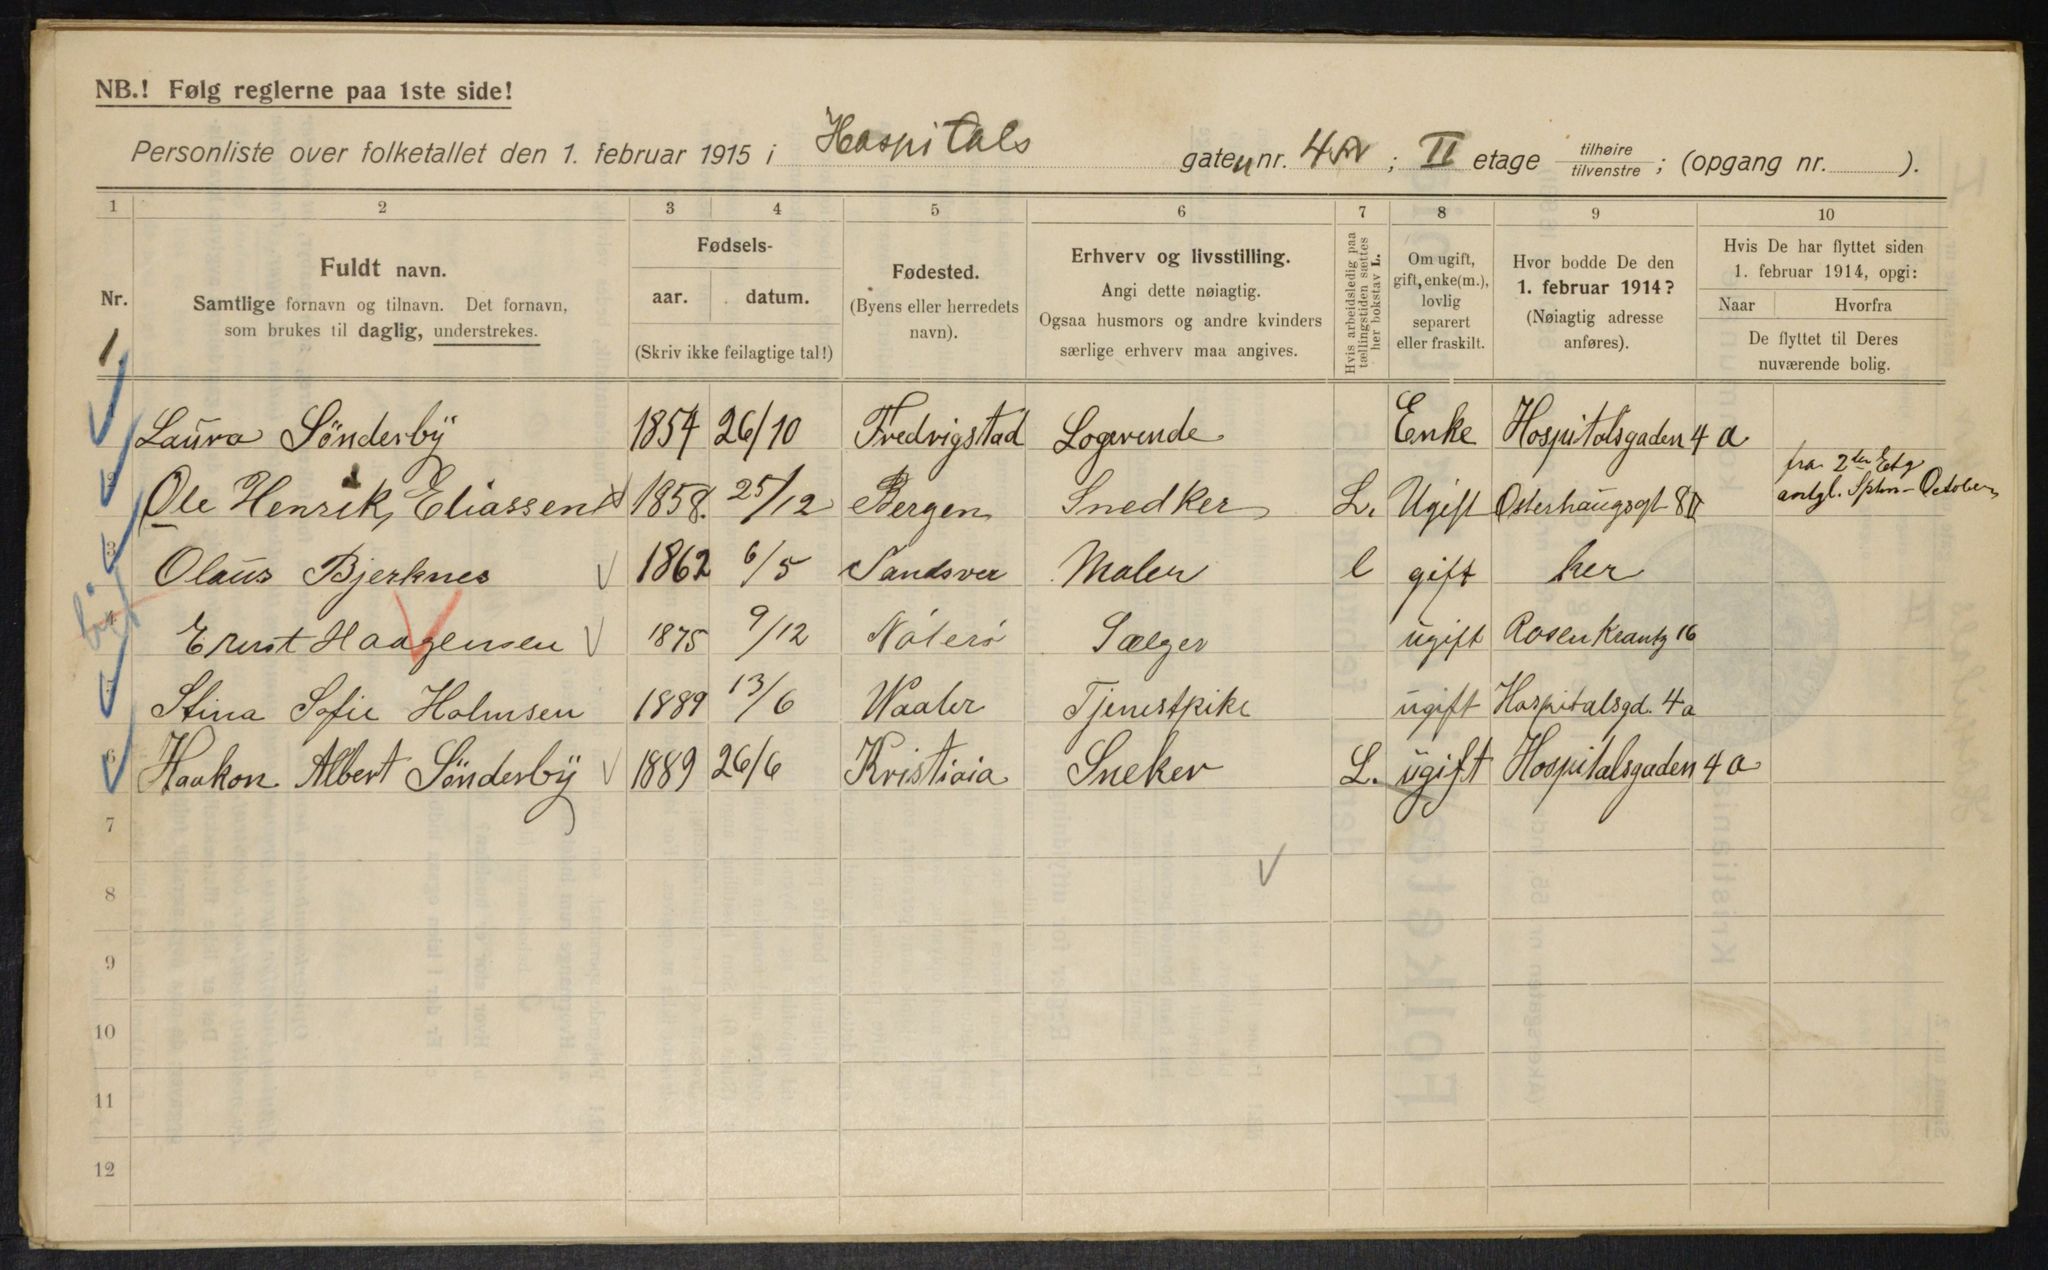 NB.! Følg reglerne paa 1ste side!
Personliste over folketallet den 1. februar 1915 i Hospitals gaten nr. 4a ; II etage tilhøire/tilvenstre ; (opgang nr. ).
1 2 3 4 5 6 7 8 9 10
Nr. Fuldt navn. Samtlige fornavn og tilnavn. Det fornavn, som brukes til daglig, understrekes.
Fødsels- aar. datum. (Skriv ikke feilagtige tal!)
Fødested. (Byens eller herredets navn).
Erhverv og livsstilling. Angi dette nøiagtig. Ogsaa husmors og andre kvinders særlige erhverv maa angives.
Hvis arbeidsledig paa tællingstiden sættes her bokstav L.
Om ugift, gift, enke(m.), lovlig separert eller fraskilt.
Hvor bodde De den 1. februar 1914? (Nøiagtig adresse anføres).
Hvis De har flyttet siden 1. februar 1914, opgi: Naar Hvorfra De flyttet til Deres nuværende bolig.
1 Laura Sønderbÿ 1854 26/10 Fredrigstad Logerende Enke Hospitalsgaden 4 a
2 Ole Henrik, Eliassen 1858. 25/12 Bergen Snedker L. Ugift Osterhaugsgt 8 II fra 2den Etg
October
3 Olaus Bjerknes 1862 6/5 Sandsver Maler l gift her
4 Ernst Haagensen 1875 9/12 Nøterø Sælger ugift Rosenkrantz 16
5 Stina Sofie Holmsen 1889 13/6 Waaler Tjenestpike ugift Hospitalsgd. 4a
6 Haakon Albert Sønderbÿ 1889 26/6 Kristiaia Sneker L. ugift Hospitalsgaden 4 a
7
8
9
10
11
12